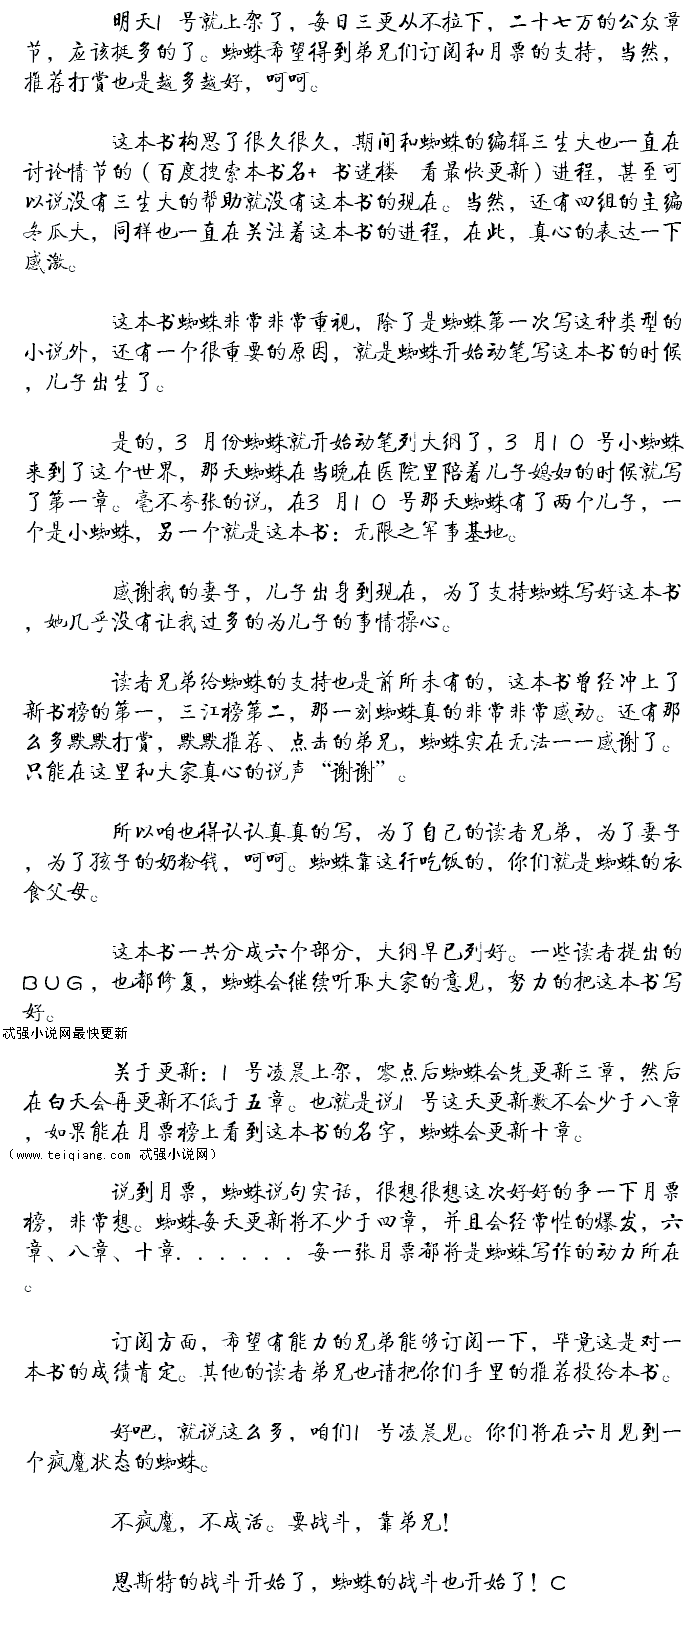 明天1号就上架了，每日三更从不拉下，二十七万的公众章
节，应该挺多的了。蜘蛛希望得到弟兄们订阅和月票的支持，当然，
推荐打赏也是越多越好，呵呵。
这本书构思了很久很久，期间和蜘蛛的编辑三生大也一直在
讨论情节的（百度搜索本书名+ 书迷楼 看最快更新）进程，甚至可
以说没有三生大的帮助就没有这本书的现在。当然，还有四组的主编
冬瓜大，同样也一直在关注着这本书的进程，在此，真心的表达一下
感激。
这本书蜘蛛非常非常重视，除了是蜘蛛第一次写这种类型的
小说外，还有一个很重要的原因，就是蜘蛛开始动笔写这本书的时候
，儿子出生了。
是的，3月份蜘蛛就开始动笔列大纲了，3月10号小蜘蛛
来到了这个世界，那天蜘蛛在当晚在医院里陪着儿子媳妇的时候就写
了第一章。毫不夸张的说，在3月10号那天蜘蛛有了两个儿子，一
个是小蜘蛛，另一个就是这本书：无限之军事基地。
感谢我的妻子，儿子出身到现在，为了支持蜘蛛写好这本书
，她几乎没有让我过多的为儿子的事情操心。
读者兄弟给蜘蛛的支持也是前所未有的，这本书曾经冲上了
新书榜的第一，三江榜第二，那一刻蜘蛛真的非常非常感动。还有那
么多默默打赏，默默推荐、点击的弟兄，蜘蛛实在无法一一感谢了。
只能在这里和大家真心的说声“谢谢”。
所以咱也得认认真真的写，为了自己的读者兄弟，为了妻子
，为了孩子的奶粉钱，呵呵。蜘蛛靠这行吃饭的，你们就是蜘蛛的衣
食父母。
这本书一共分成六个部分，大纲早已列好。一些读者提出的
BUG，也都修复，蜘蛛会继续听取大家的意见，努力的把这本书写
好。
忒强小说网最快更新
关于更新：1号凌晨上架，零点后蜘蛛会先更新三章，然后
在白天会再更新不低于五章。也就是说1号这天更新数不会少于八章
，如果能在月票榜上看到这本书的名字，蜘蛛会更新十章。
（www.teiqiang.com 忒强小说网）
说到月票，蜘蛛说句实话，很想很想这次好好的争一下月票
榜，非常想。蜘蛛每天更新将不少于四章，并且会经常性的爆发，六
章、八章、十章......每一张月票都将是蜘蛛写作的动力所在
。
订阅方面，希望有能力的兄弟能够订阅一下，毕竟这是对一
本书的成绩肯定。其他的读者弟兄也请把你们手里的推荐投给本书。
好吧，就说这么多，咱们1号凌晨见。你们将在六月见到一
个疯魔状态的蜘蛛。
不疯魔，不成活。要战斗，靠弟兄！
恩斯特的战斗开始了，蜘蛛的战斗也开始了！C